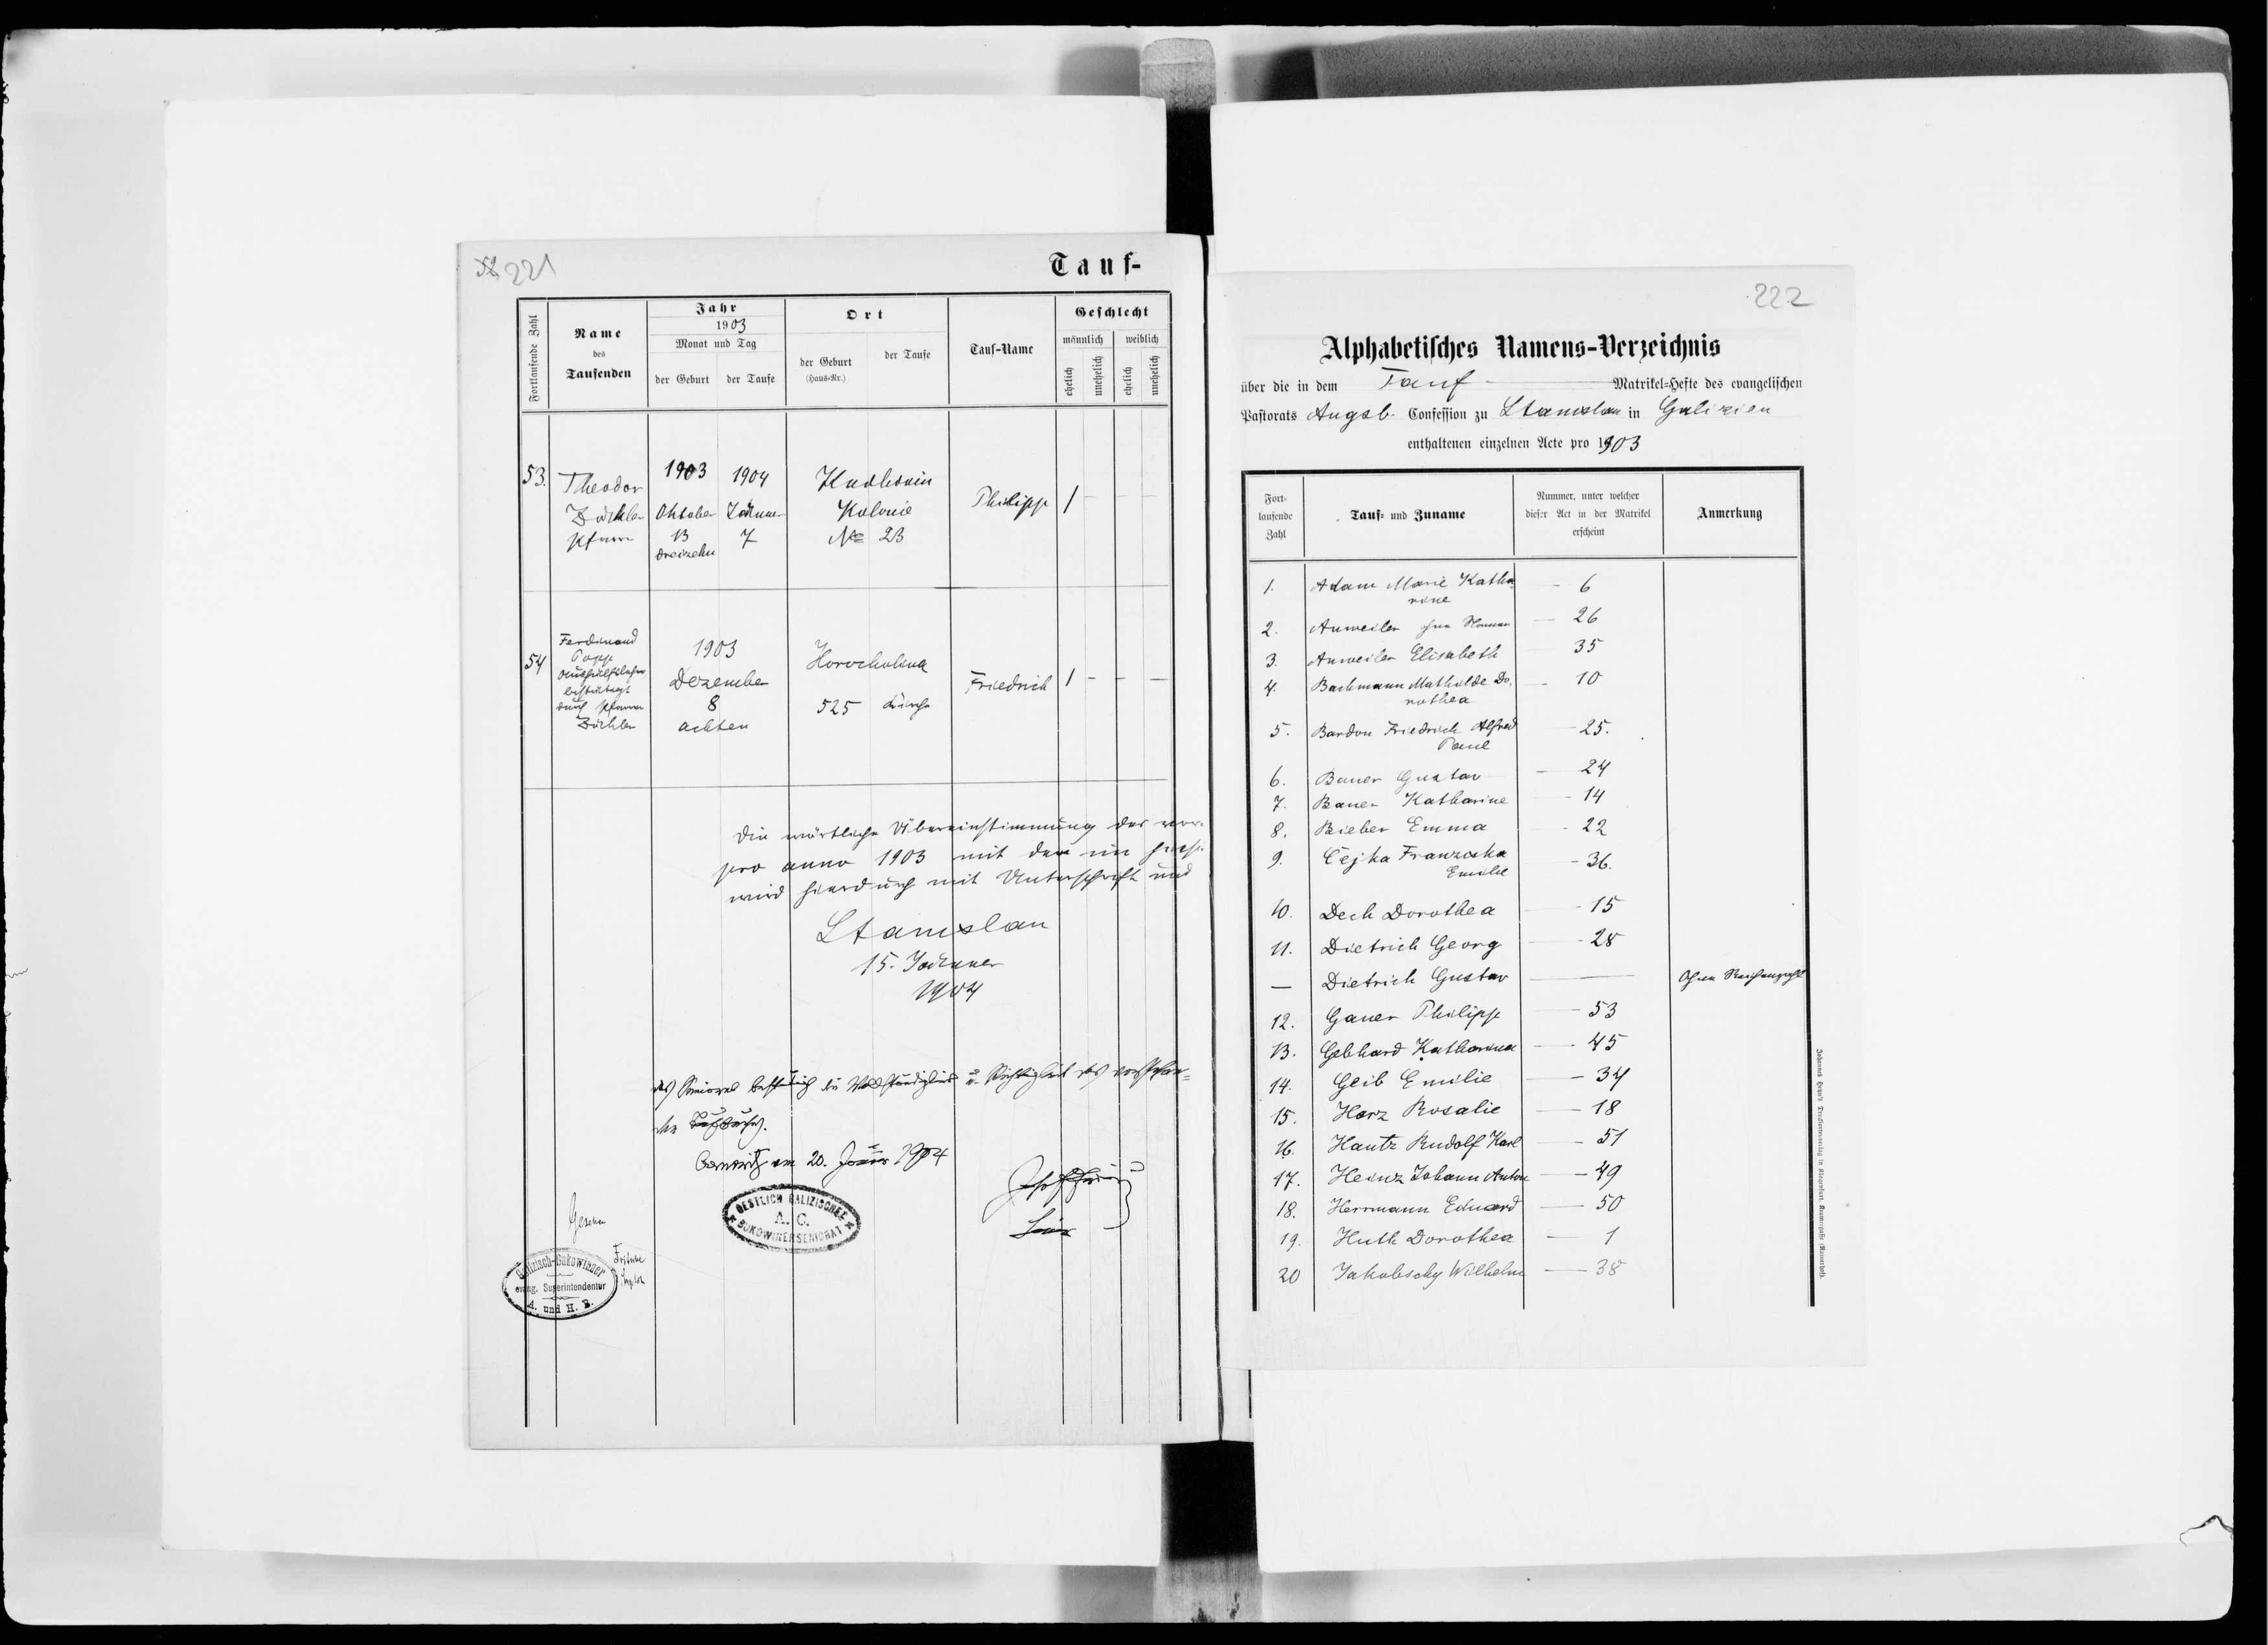 52 221
Tauf-
Fortlaufende Zahl
Name
des
Taufenden
Jahr
1903
Monat und Tag
der Geburt
der Taufe
Ort
der Geburt
(Haus-Nr.)
der Taufe
Tauf-Name
Geschlecht
männlich
weiblich
ehelich
unehelich
ehelich
unehelich
53. Theodor
Zöckler
Pfarrer
1903 1904
Oktober Jänner
13 7
dreizehn
Kolonie
№ 23
Philipp 1 - - -
54
Ferdinand
Popp
bestätigt
durch Pfarrer
Zöckler
1903
Dezember
8
achten
Horocholina
525
Friedrich 1 - - -
Die wörtliche Übereinstimmung der vor-
pro anno 1903 mit den im
wird hierdurch mit Unterschrift und
Stanislau
15. Jänner
1904
am 20. Jänner 1904
OESTLICH GALIZISCHES
A. C.
BUKOWINERSENIORAT
Gesehen
Galizisch-Bukowinaer
evang. Superintendentur
A. und H. B.
222
Alphabetisches Namens-Verzeichnis
über die in dem Tauf - Matrikel-Hefte des evangelischen
Pastorats Augsb. Confession zu Stanislau in Galizien
enthaltenen einzelnen Acte pro 1903
Fort-
laufende
Zahl
Tauf- und Zuname
Nummer, unter welcher
dieser Act in der Matrikel
erscheint
Anmerkung
1. Adam Marie Katha- — 6
rine
2. Anweiler ohne Namen — 26
3. Anweiler Elisabeth 35
4. Bachmann Mathilde Do- — 10
rothea
5. Bardon Friedrich Alfred — 25.
Paul
6. Bauer Gustav — 24
7. Bauer Katharine — 14
8. Bieber Emma — 22
9. Čejka Franziska — 36.
Emilie
10. Dech Dorothea — 15
11. Dietrich Georg — 28
— Dietrich Gustav —
12. Gauer Philipp — 53
13. Gebhard Katharina — 45
14. Geib Emilie — 34
15. Harz Rosalie — 18
16. Hautz Rudolf Karl — 51
17. Heinz Johann Anton — 49
18. Herrmann Eduard — 50
19. Huth Dorothea — 1
20 Jakubschy Wilhelm — 38